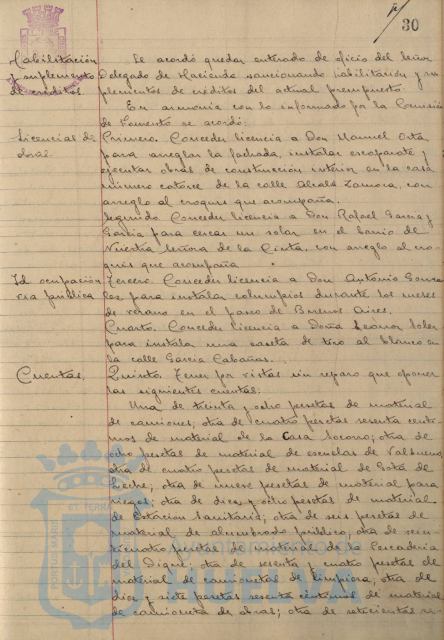 30
Habilitación
y suplemento
de créditos.
Se acordó quedar enterado de oficio del Señor
Delegado de Hacienda sancionando habilitación y su
plementos de créditos del actual presupuesto.
En armonia con lo informado por la Comisión
de Fomento se acordó:
Licencias de
obras.
Primero. Conceder licencia a Don Manuel Orta
para arreglar la fachada, instalar escaparate y
ejecutar obras de construcción interior en la casa
número catorce de la calle Alcalá Zamora, con
arreglo al croquis que acompaña.
Segundo. Conceder licencia a Don Rafael Garcia y
Garcia para cercar un solar en el barrio de
Nuestra Señora de la Cinta, con arreglo al cro
quis que acompaña.
Id ocupación
via pública
Tercero. Conceder licencia a Don Antonio Gonza
lez para instalar columpios durante los meses
de verano en el paseo de Buenos Aires.
Cuarto. Conceder licencia a Doña Leonor Soler
para instala una caseta de tiro al blanco en
la calle Garcia Cabañas.
Cuentas.
Quinto. Tener por vistas sin reparo que oponer
las siguientes cuentas:
Una de treinta y ocho pesetas de material
de camiones; otra de cuatro pesetas sesenta centi
mos de material de la Casa Socorro; otra de
ocho pesetas de material de escuelas de Valbueno;
otra de cuatro pesetas de material de Gota de
Leche; otra de nueve pesetas de material para
riegos; otra de diez y ocho pesetas de material
de Estación Sanitaria; otra de seis pesetas de
material de alumbrado público; otra de vein
ticuatro pesetas de material de la Pescaderia
del Dique; otra de sesenta y cuatro pesetas de
material de camionetas de limpieza; otra de
diez y siete pesetas sesenta céntimos de material
de camioneta de obras; otra de setecientas
PORTUS MARIS ET TERRAE